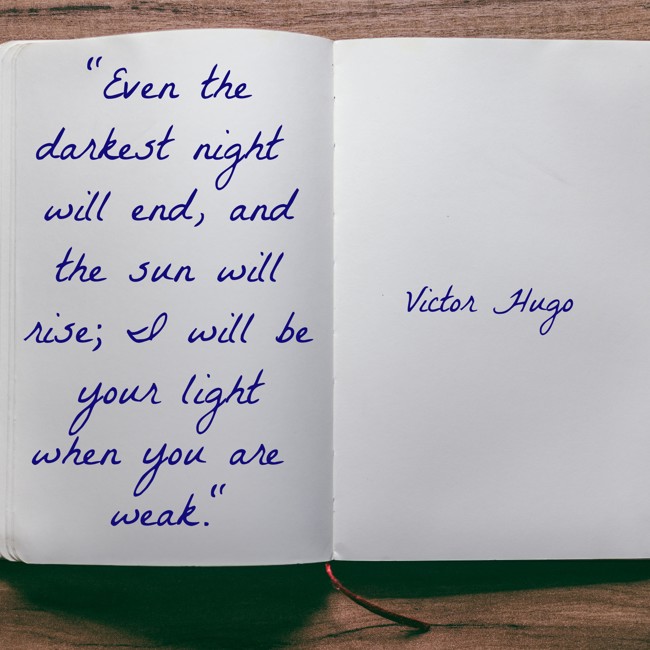 “Even the
darkest night
will end, and
the sun will
rise; I will be
your light
when you are
weak.“
Victor Hugo